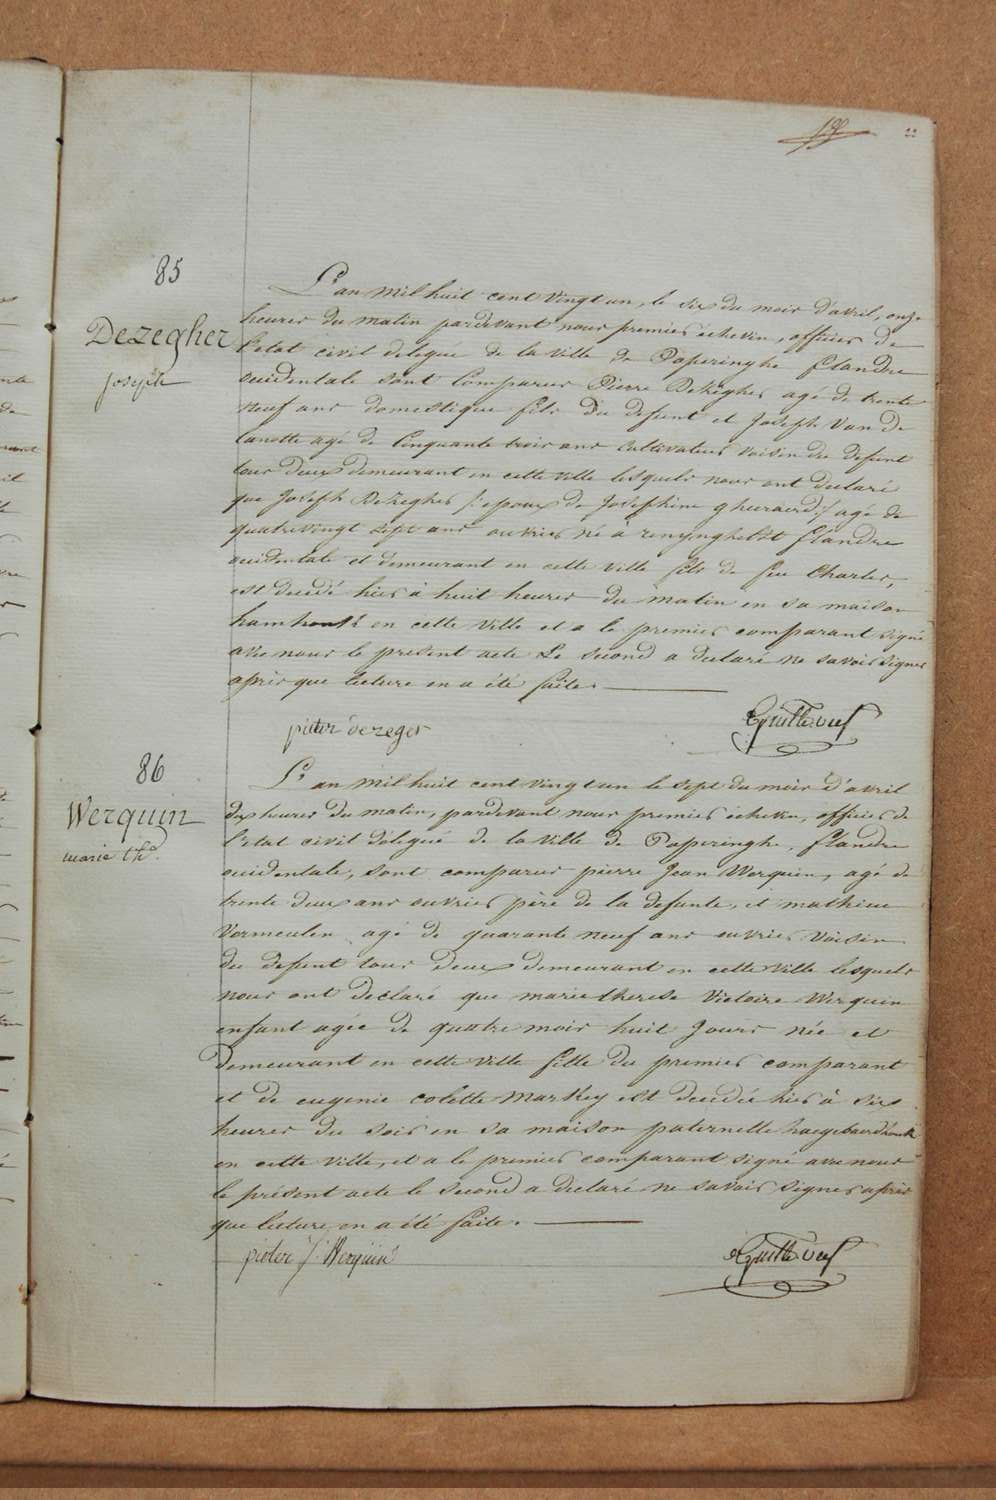 22
85
Dezegher
joseph
L'an mil huit cent vingt un, le six du mois d'avril, onze
heures du matin pardevant nous premier échevin, officier de
l'etat civil delegue de la ville de Poperinghe flandre
occidentale sont Comparus Pierre Dezegher agé de trente
neuf ans domestique fils du defunt et Joseph Van de
lanotte agé de Cinquante trois ans cultivateur voisin du defunt
tous deux demeurant en cette ville lesquels nous ont declaré
que Joseph Dezegher /: epoux de Josephine gheraerd :/ agé de
quatrevingt sept ans ouvrier né à renynghelst flandre
occidentale et demeurant en cette ville fils de feu Charles,
est decedé hier à huit heures du matin en sa maison
hamhouk en cette ville et a le premier comparant signé
avec nous le present acte le second a declaré ne savoir signer
après que lecture en a été faite.
pieter dezeger
86
Werquin
marie th.
L'an mil huit cent vingt un le sept du mois d'avril
dix heures du matin, pardevant nous premier échevin, officier de
l'etat civil delegué de la ville de Poperinghe, flandre
occidentale, sont comparus pierre Jean Werquin, agé de
trente deux ans ouvrier père de la defunte, et mathieu
Vermeulen agé de quarante neuf ans ouvrier voisin
du defunt tous deux demeurant en cette ville lesquels
nous ont declaré que marie therese Victoire Werquin
enfant agée de quatre mois huit Jours née et
demeurant en cette ville fille du premier comparant
et de eugenie colette Markey est decedée hier à six
heures du soir en sa maison paternelle
en cette ville, et a le premier comparant signé avec nous
le présent acte le second a declaré ne savoir signer après
que lecture en a été faite.
pieter J: Werquin